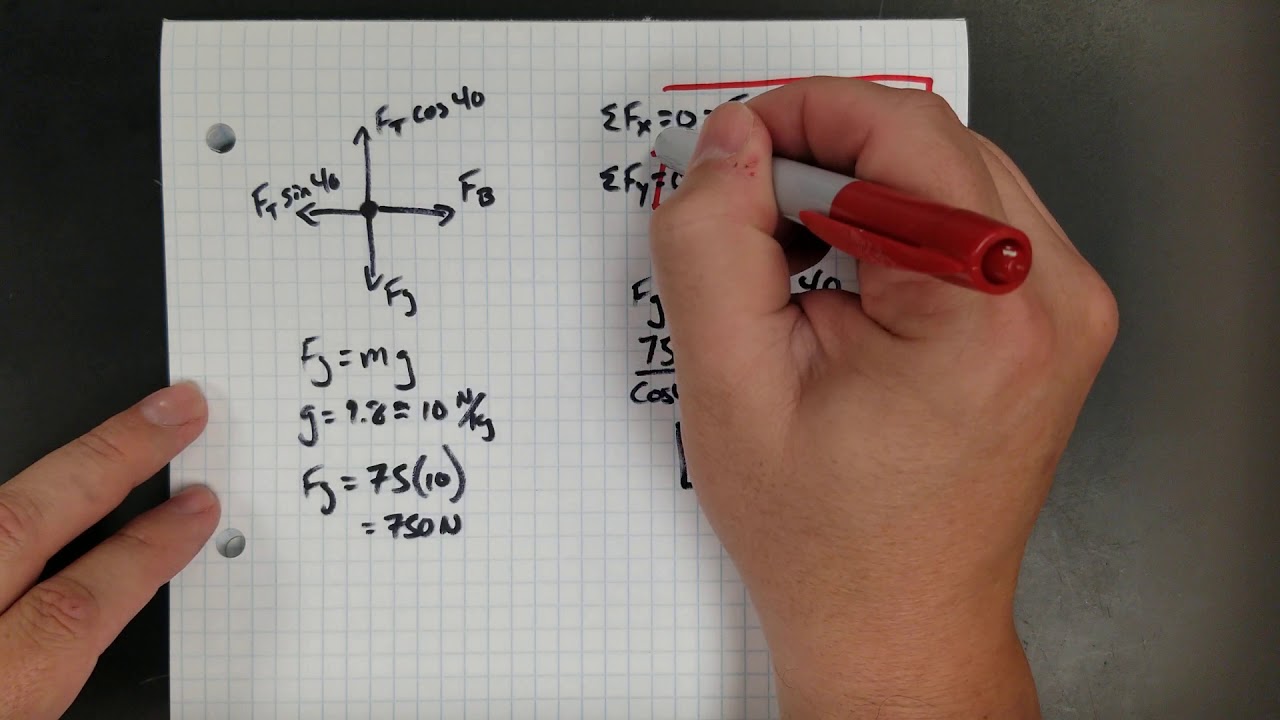 F_T cos 40
F_T sin 40
F_B
F_g
F_g = mg
g = 9.8 ≈ 10 N/kg
F_g = 75(10)
= 750 N
ΣF_x = 0 =
ΣF_y =
F_g 40
75
cos